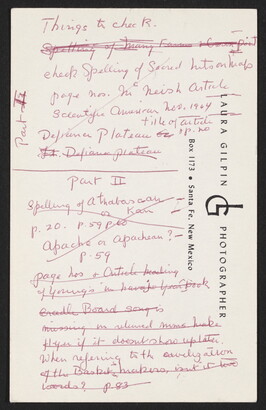 Things to check.
Spelling of many
check Spelling of Sacred Mts on maps
page nos. Mc Neish Article
Scientific American Nov. 1964
title of article
Defiance Plateau or p. no
Ft. Defiance plateau
Part I
Part II
Spelling of Athabascan –
or Kan –
p. 20. p. 59 p. 60
Apache or Apachean? –
p. 59
page nos & Article heading
of Young's in book
Cradle Board song is
missing in relined mms. make
if it doesnt show up later.
When referring to the civilization
of the Basket makers, isnt it two
words? p. 83
LAURA GILPIN PHOTOGRAPHER
LG
Box 1173 • Santa Fe, New Mexico